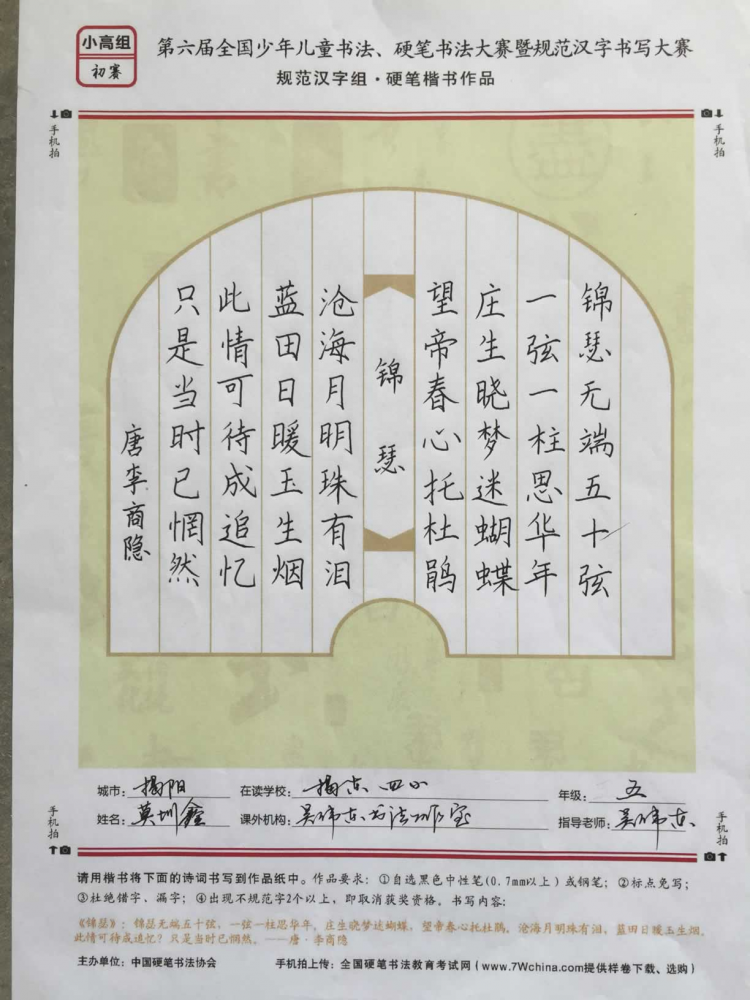 小高组
初赛
第六届全国少年儿童书法、硬笔书法大赛暨规范汉字书写大赛
规范汉字组·硬笔楷书作品
手机拍
手机拍
锦瑟无端五十弦
一弦一柱思华年
庄生晓梦迷蝴蝶
望帝春心托杜鹃
锦瑟
沧海月明珠有泪
蓝田日暖玉生烟
此情可待成追忆
只是当时已惘然
唐李商隐
城市：揭阳 在读学校：揭东四小 年级：五
姓名：莫圳鑫 课外机构：吴伟东书法工作室 指导老师：吴伟东
手机拍
手机拍
请用楷书将下面的诗词书写到作品纸中。作品要求：①自选黑色中性笔(0.7mm以上)或钢笔；②标点免写；
③杜绝错字、漏字；④出现不规范字2个以上，即取消获奖资格。书写内容：
《锦瑟》：锦瑟无端五十弦，一弦一柱思华年。庄生晓梦迷蝴蝶，望帝春心托杜鹃。沧海月明珠有泪，蓝田日暖玉生烟。
此情可待成追忆？只是当时已惘然。——唐·李商隐
主办单位：中国硬笔书法协会 手机拍上传：全国硬笔书法教育考试网(www.7Wchina.com提供样卷下载、选购)